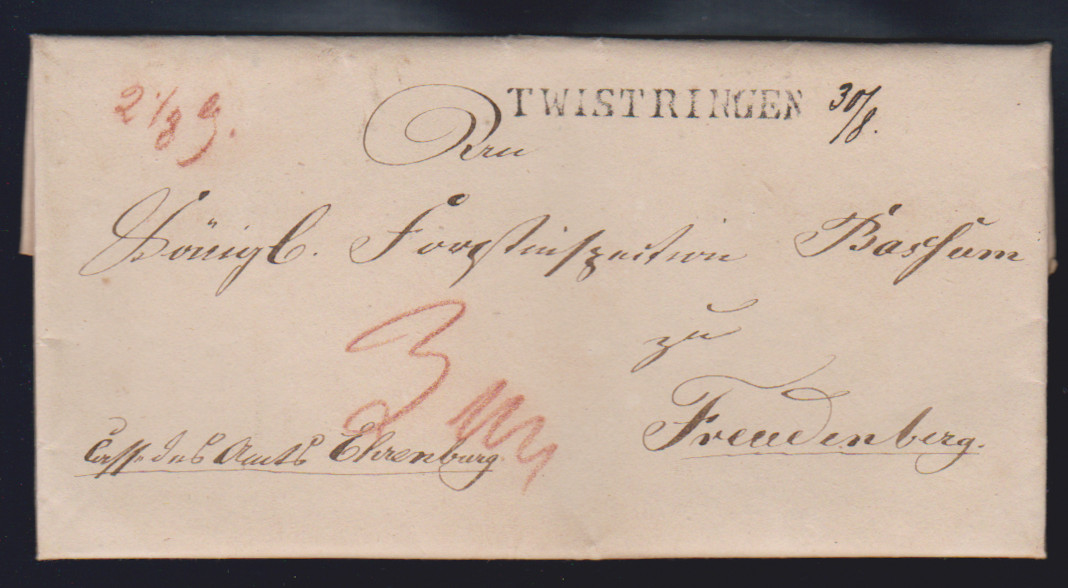 2 1/8 g.
TWISTRINGEN 30/8.
Königl. Forstinspection Bassum
zu
3
Freudenberg.
des Amts Ehrenburg.